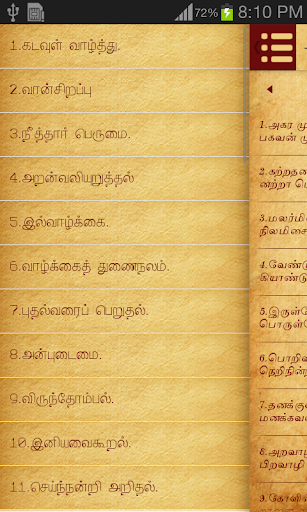 72% 8:10 PM
1.கடவுள் வாழ்த்து.
2.வான்சிறப்பு
3.நீத்தார் பெருமை.
4.அறன்வலியுறுத்தல்
5.இல்வாழ்க்கை.
6.வாழ்க்கைத் துணைநலம்.
7.புதல்வரைப் பெறுதல்.
8.அன்புடைமை.
9.விருந்தோம்பல்.
10.இனியவைகூறல்.
11.செய்ந்நன்றி அறிதல்.
1.அகர மு
பகவன் மு
2.கற்றத
னற்றா
3.மலர்மி
நிலமிசை
4.வேண்டு
கியாண்டு
5.இருள்
பொருள்
6.பொறி
நெறிநின்
7.தனக்கு
மனக்கவ
8.அறவா
பிறவாழி
9.கோளி